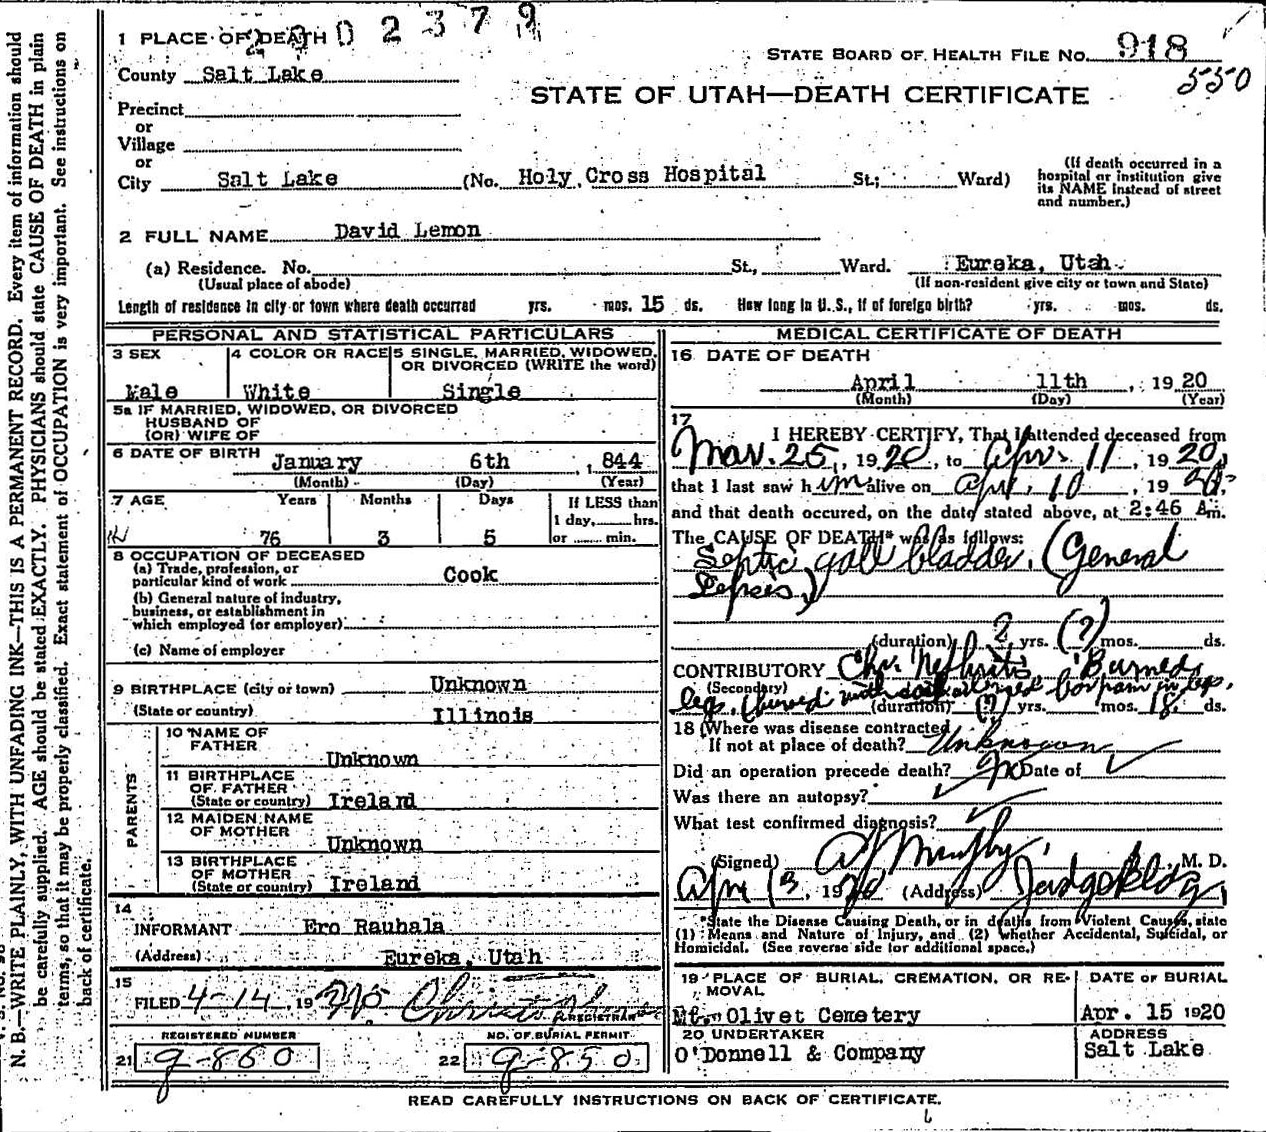 2002379
1 PLACE OF DEATH
STATE BOARD OF HEALTH FILE No. 918
550
County Salt Lake
STATE OF UTAH—DEATH CERTIFICATE
Precinct
or
Village
or
City Salt Lake (No. Holy Cross Hospital St.; Ward)
(If death occurred in a hospital or institution give its NAME instead of street and number.)
2 FULL NAME David Lemon
(a) Residence. No. St., Ward. Eureka, Utah
(Usual place of abode) (If non-resident give city or town and State)
Length of residence in city or town where death occurred yrs. mos. 15 ds. How long in U. S., if of foreign birth? yrs. mos. ds.
PERSONAL AND STATISTICAL PARTICULARS
3 SEX 4 COLOR OR RACE 5 SINGLE, MARRIED, WIDOWED,
OR DIVORCED (WRITE the word)
Male White Single
5a IF MARRIED, WIDOWED, OR DIVORCED
HUSBAND OF
(OR) WIFE OF
6 DATE OF BIRTH January 6th, 1844
(Month) (Day) (Year)
7 AGE Years Months Days If LESS than
1 day, hrs.
76 3 5 or min.
8 OCCUPATION OF DECEASED
(a) Trade, profession, or
particular kind of work Cook
(b) General nature of industry,
business, or establishment in
which employed (or employer)
(c) Name of employer
9 BIRTHPLACE (city or town) Unknown
(State or country) Illinois
PARENTS
10 NAME OF
FATHER Unknown
11 BIRTHPLACE
OF FATHER
(State or country) Ireland
12 MAIDEN NAME
OF MOTHER Unknown
13 BIRTHPLACE
OF MOTHER
(State or country) Ireland
14
INFORMANT Ero Rauhala
(Address) Eureka, Utah
15
FILED 4-14, 1920
REGISTRAR
REGISTERED NUMBER NO. OF BURIAL PERMIT
21 9-850 22 9-850
MEDICAL CERTIFICATE OF DEATH
16 DATE OF DEATH
April 11th, 1920
(Month) (Day) (Year)
17
I HEREBY CERTIFY, That I attended deceased from
Mar. 25, 1920, to Apr. 11, 1920,
that I last saw him alive on Apr. 10, 1920,
and that death occured, on the date stated above, at 2:46 Am.
The CAUSE OF DEATH* was as follows:
Septic gall bladder. (General
Sepsis)
(duration) 2 yrs. (?) mos. ds.
CONTRIBUTORY Chr. Nephritis Burned
(Secondary)
legs. (burned with
(duration) (?) yrs. mos. 18 ds.
18 (Where was disease contracted
If not at place of death? Unknown
Did an operation precede death? No Date of
Was there an autopsy?
What test confirmed diagnosis?
(Signed) Murphy, M. D.
Apr 13, 1920 (Address) Judge Bldg,
*State the Disease Causing Death, or in deaths from Violent Causes, state
(1) Means and Nature of Injury, and (2) whether Accidental, Suicidal, or
Homicidal. (See reverse side for additional space.)
19 PLACE OF BURIAL, CREMATION, OR RE-
MOVAL
DATE OF BURIAL
Mt. Olivet Cemetery Apr. 15 1920
20 UNDERTAKER ADDRESS
O'Donnell & Company Salt Lake
READ CAREFULLY INSTRUCTIONS ON BACK OF CERTIFICATE.
N. B.—WRITE PLAINLY, WITH UNFADING INK—THIS IS A PERMANENT RECORD. Every item of information should
be carefully supplied. AGE should be stated EXACTLY. PHYSICIANS should state CAUSE OF DEATH in plain
terms, so that it may be properly classified. Exact statement of OCCUPATION is very important. See instructions on
back of certificate.